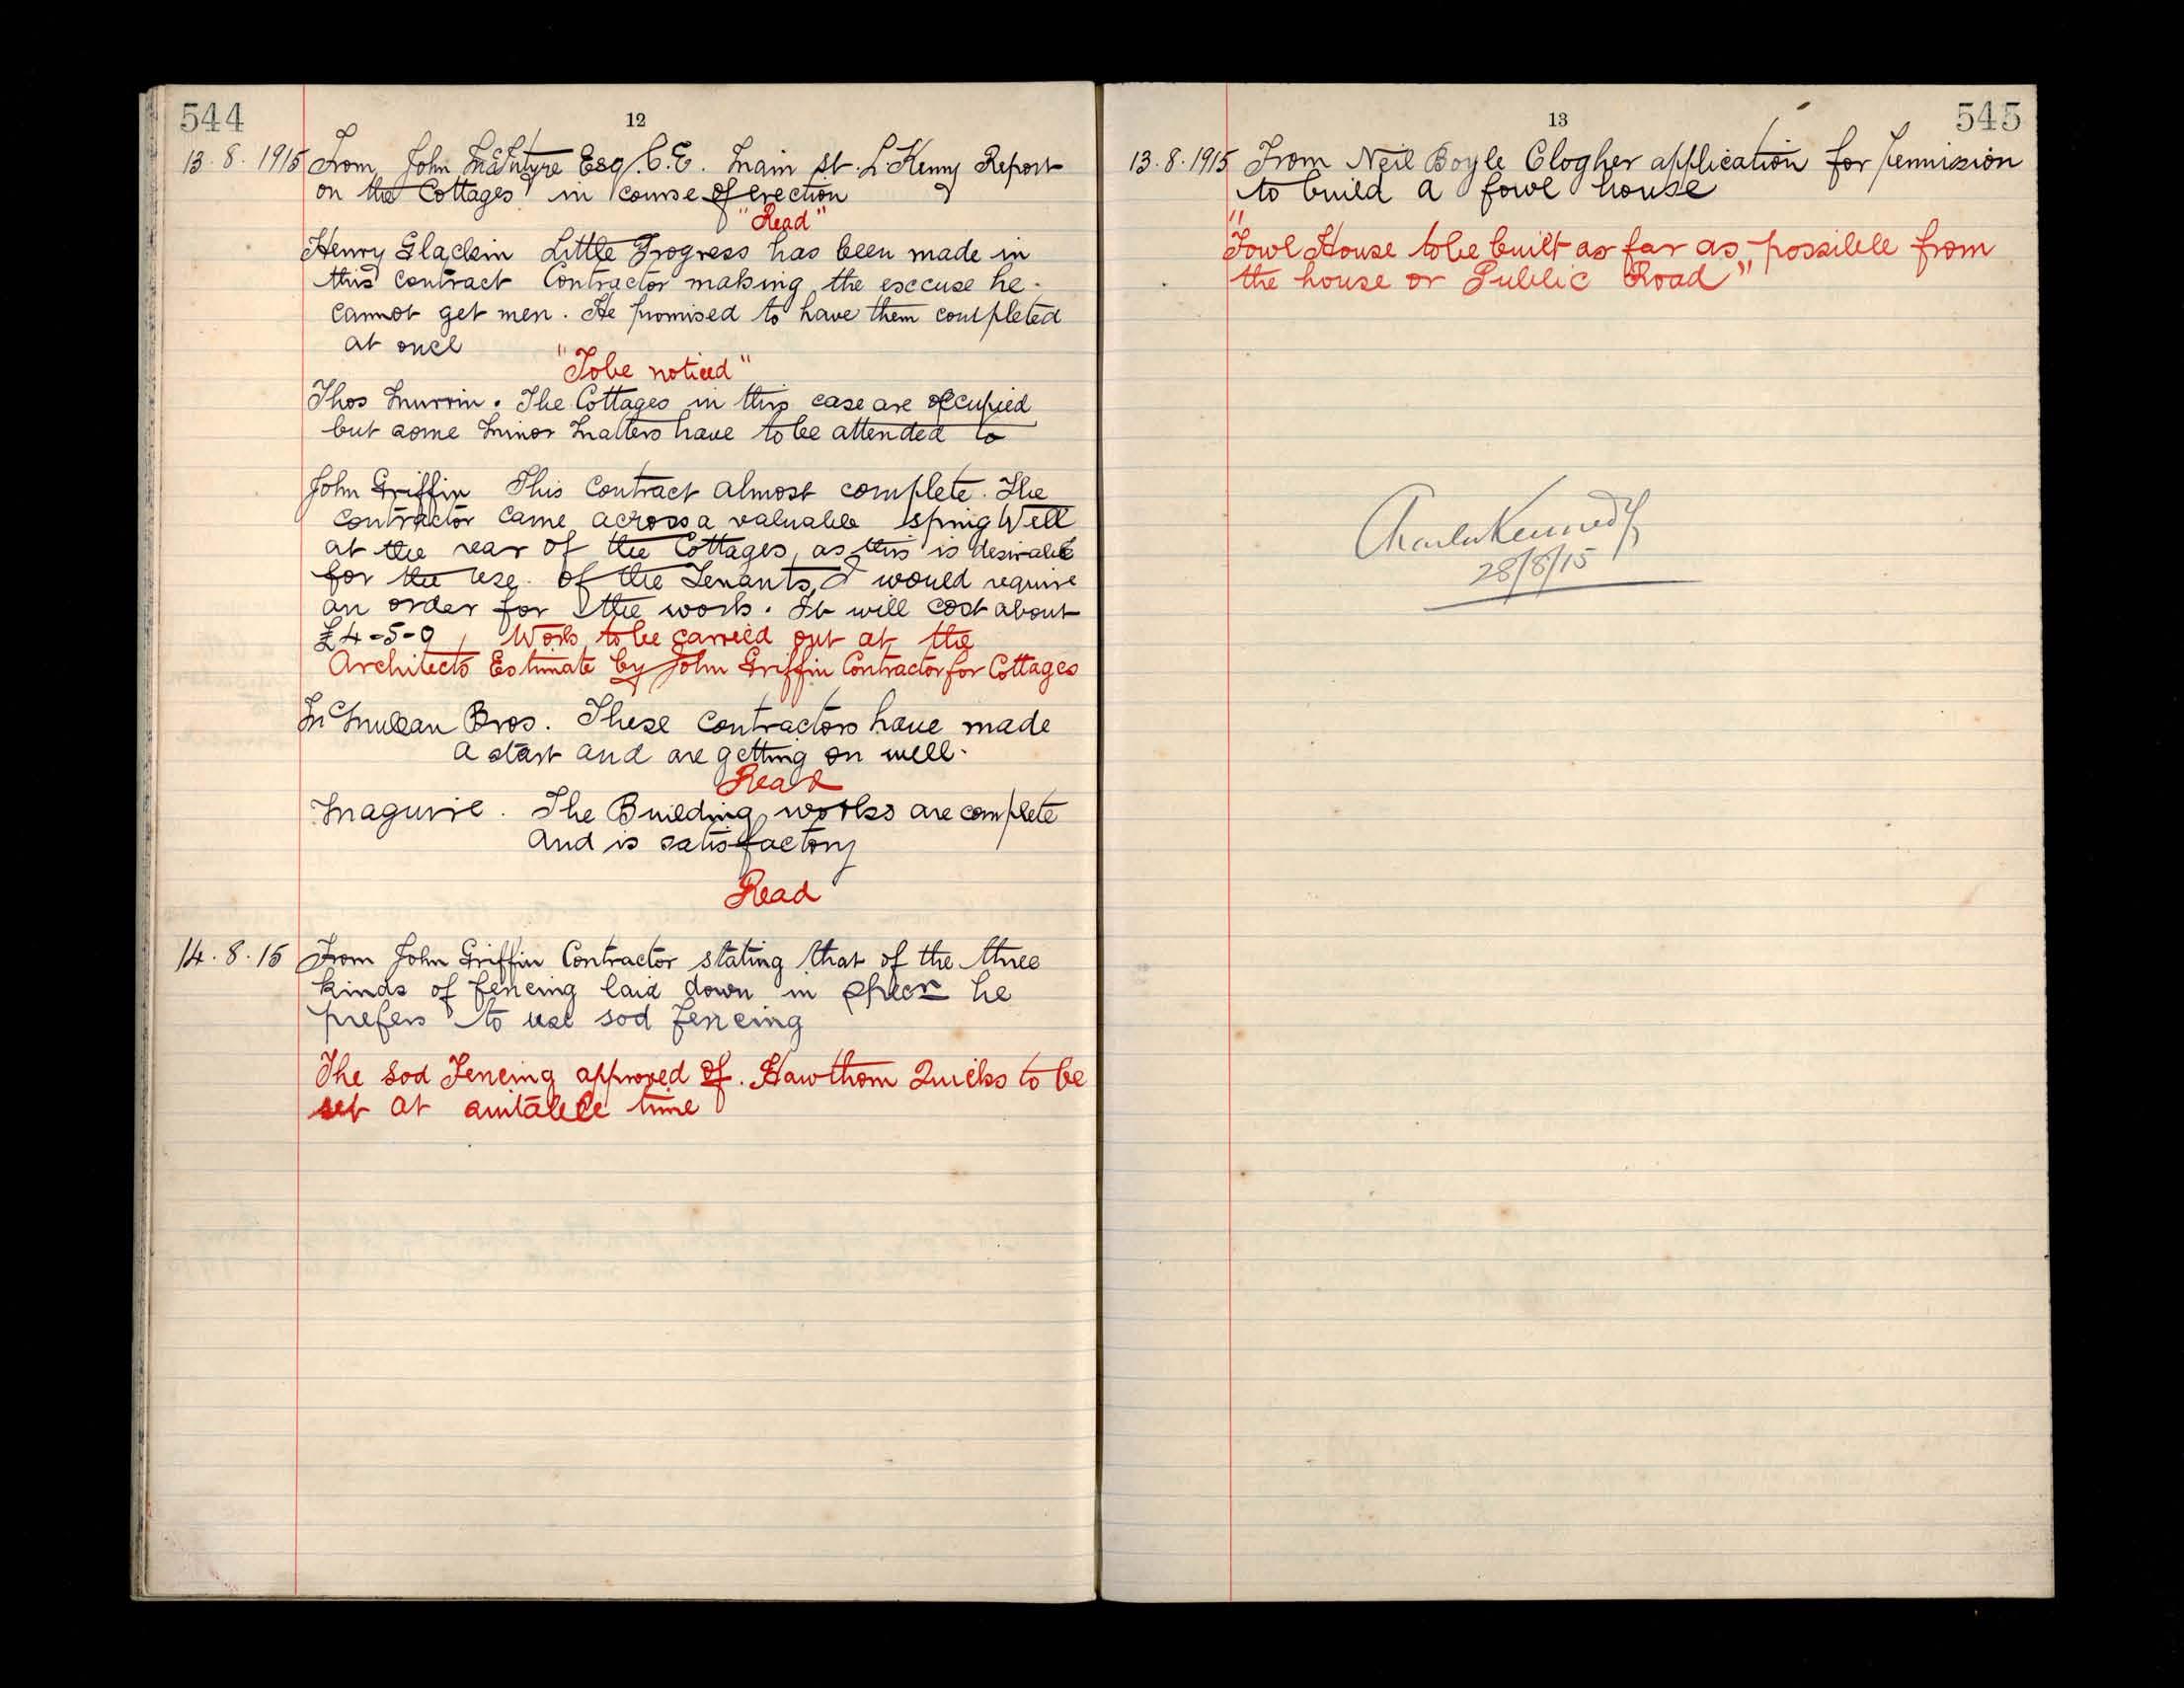 544
12
13.8.1915 From John McIntyre Esq C.E. Main St. L'Kenny Report
on the Cottages in course of erection
"Read"
Henry Glackin Little Progress has been made in
this contract Contractor making the esccuse he
cannot get men. He promised to have them completed
at once
"To be noticed"
Thos Murrin. The Cottages in this case are occupied
but some minor matters have to be attended to
John Griffin This Contract almost complete. The
contractor came across a valuable Spring Well
at the rear of the Cottages, as this is desirable
for the use of the Tenants, I would require
an order for the work. It will cost about
£4-5-0, Work to be carried out at the
Architects Estimate by John Griffin Contractor for Cottages
McMullan Bros. These Contractors have made
a start and are getting on well.
Read
Maguire. The Building works are complete
and is satisfactory
Read
14.8.15 From John Griffin Contractor stating that of the three
kinds of fencing laid down in he
prefers to use sod fencing
The Sod Fencing approved of. Hawthorn Quicks to be
set at suitable time
545
13
13.8.1915 From Neil Boyle Clogher application for permission
to build a fowl house
"Fowl House to be built as far as possible from
the house or Public Road"
Charles Kennedy
28/8/15